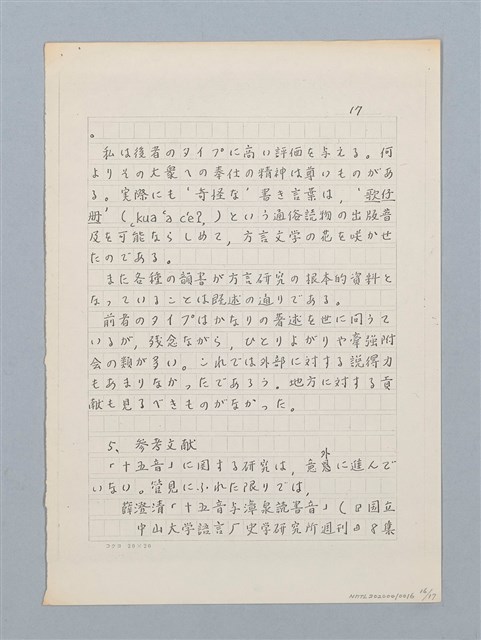 17
。
私は後者のタイプに高い評価を与える。何
よりその大衆への奉仕の精神は尊いものがあ
る。実際にも‘奇怪な’書き言葉は,‘歌仔
册’(kua a c'eʔ)という通俗読物の出版普
及を可能ならしめて,方言文学の花を咲かせ
たのである。
また各種の韻書が方言研究の根本的資料と
なっていることは既述の通りである。
前者のタイプはかなりの著述を世に問うて
いるが,残念ながら,ひとりよがりや牽強附
会の類が多い。これでは外部に対する説得力
もあまりなかったであろう。地方に対する貢
献も見るべきものがなかった。
5、参考文献
「十五音」に関する研究は,意外に進んで
いない。管見にふれた限りでは,
薛澄清「十五音与漳泉読書音」(『国立
中山大学語言厂史学研究所週刊』8集
コクヨ 20×20
NMTL20200410016 16/37